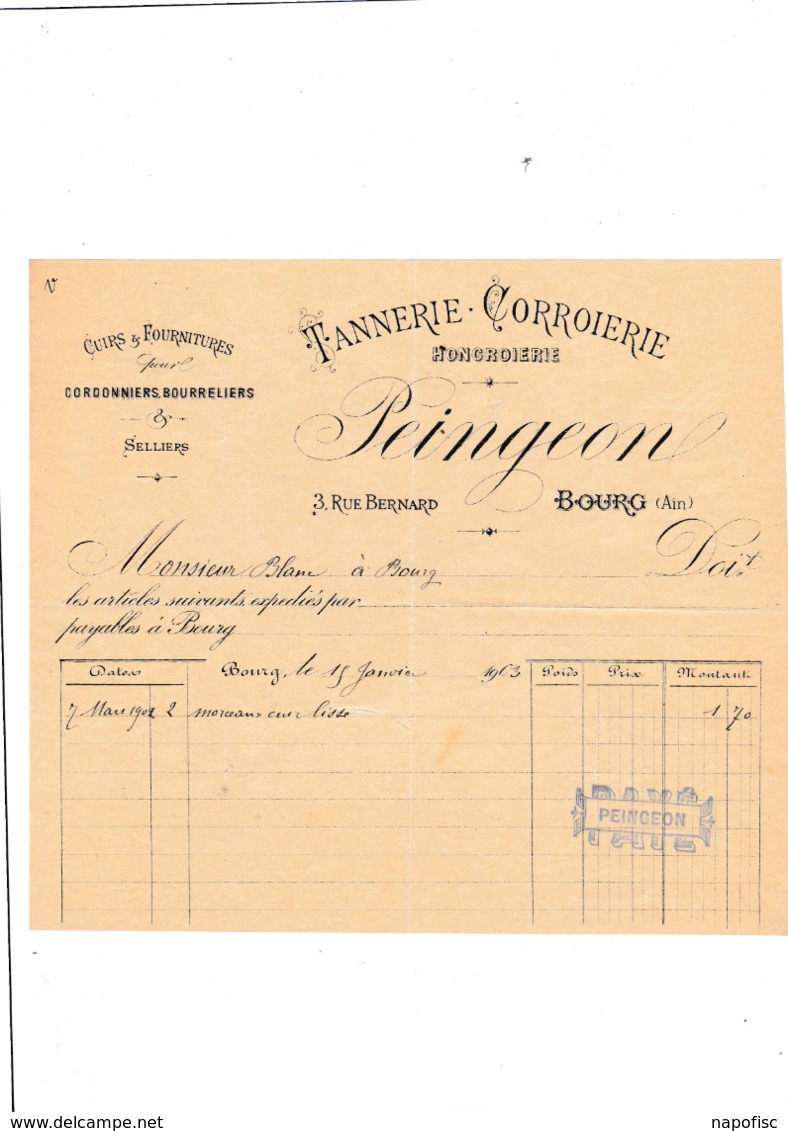 V
CUIRS & FOURNITURES
pour
CORDONNIERS, BOURRELIERS
&
SELLIERS
TANNERIE · CORROIERIE
HONGROIERIE
Peingeon
3, RUE BERNARD BOURG (Ain)
Monsieur Blanc à Bourg Doit
les articles suivants, expediés par
payables à Bourg
Dates Bourg, le 15 Janvier 1903 Poids Prix Montant
7 Mars 1902 2 morceaux cuir lisse 1 70
PAYÉ
PEINGEON
delcampe.net
napofisc